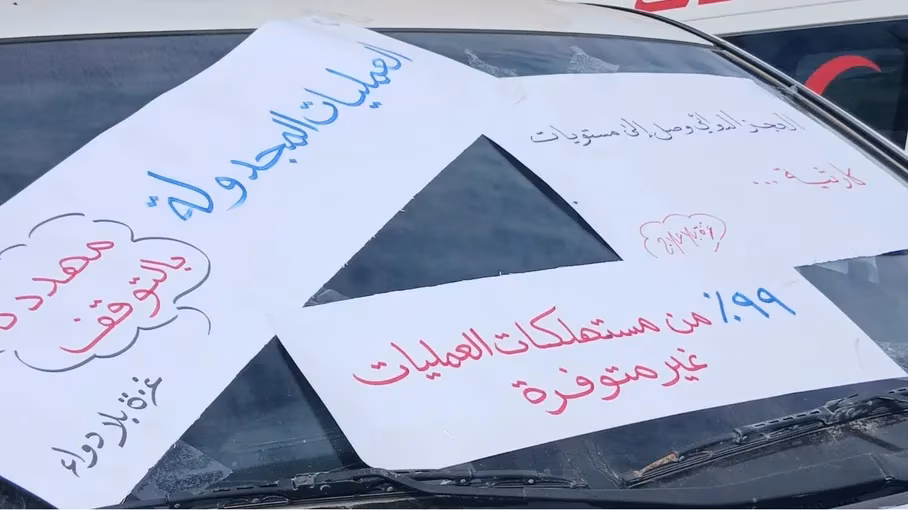 العمليات المجدولة
مهددة
بالتوقف
غزة بلا دواء
العجز الدوائي وصل إلى مستويات
كارثية...
٩٩٪ من مستهلكات العمليات
غير متوفرة